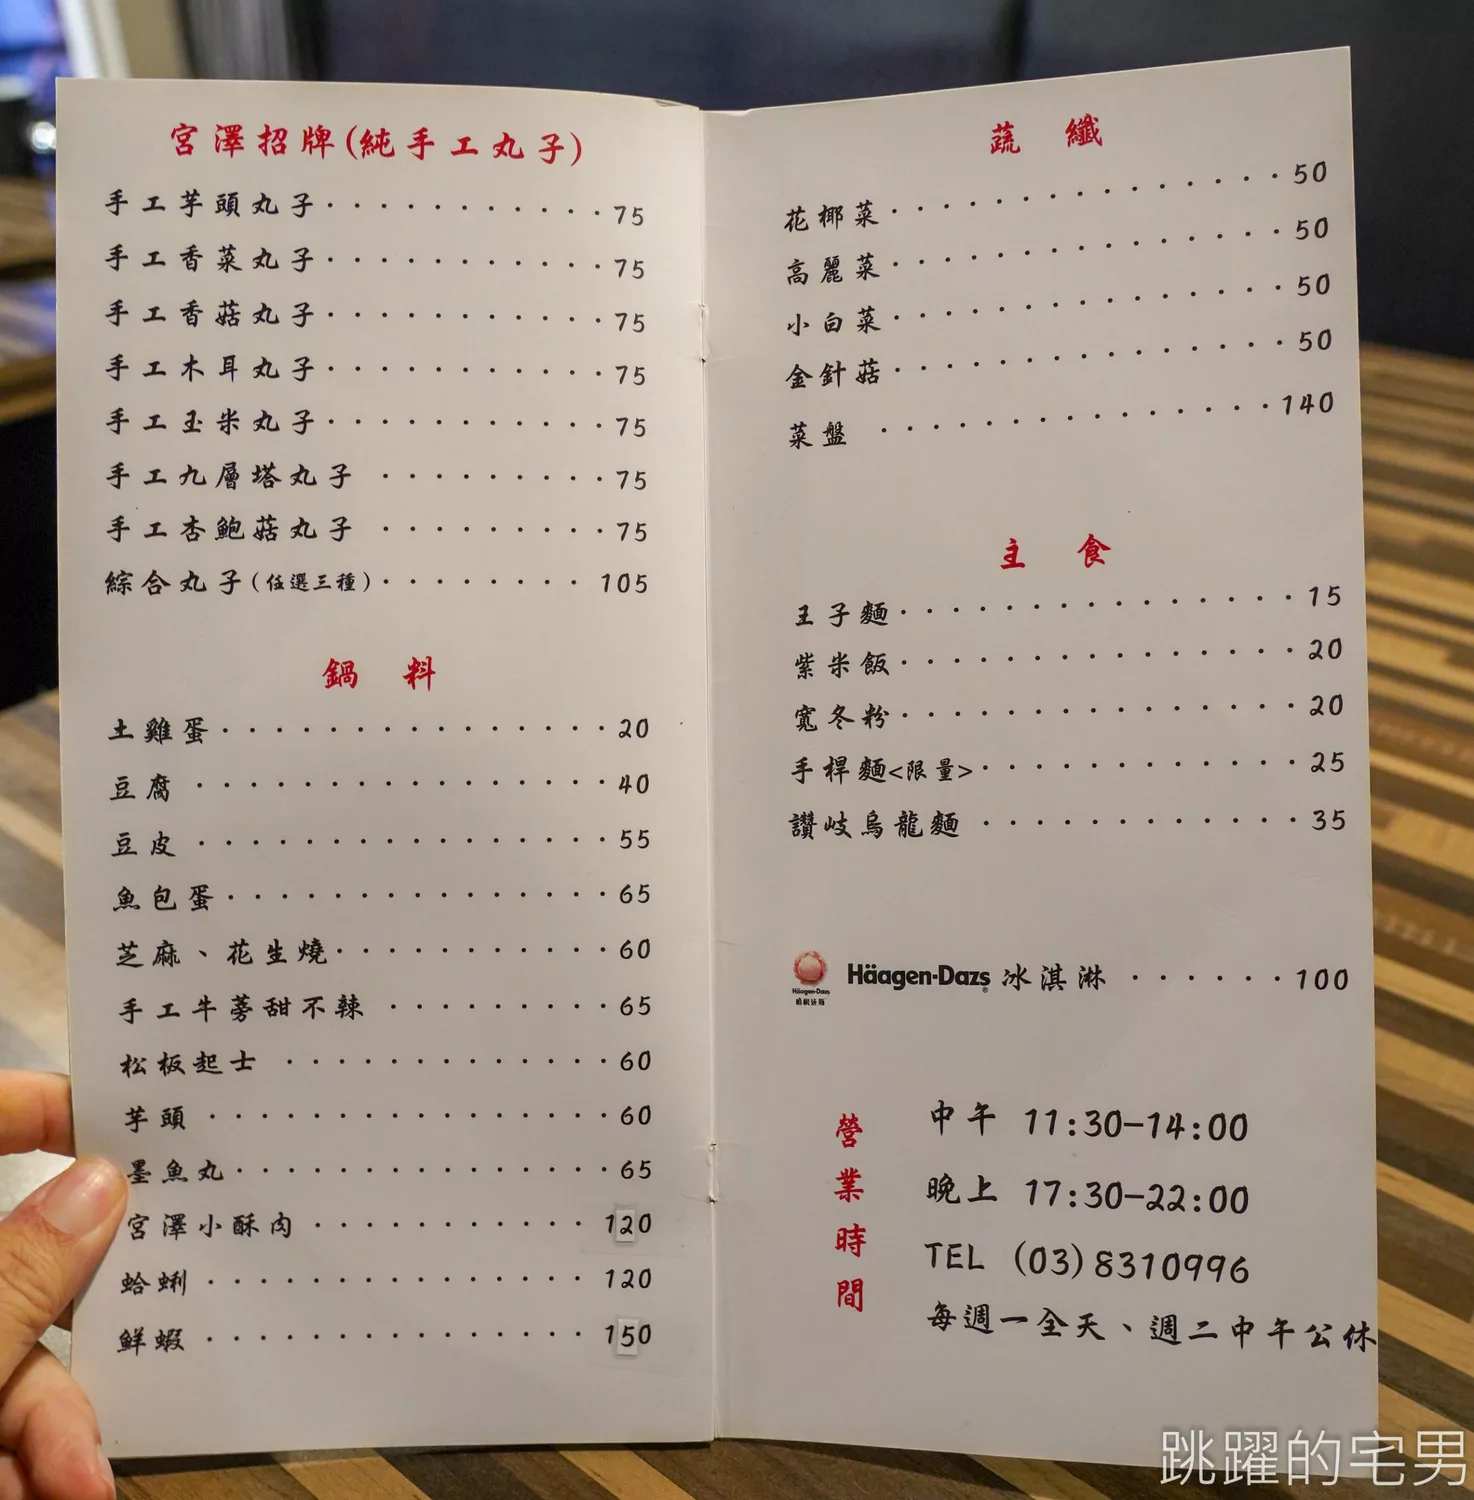 宮澤招牌(純手工丸子)
手工芋頭丸子···········75
手工香菜丸子···········75
手工香菇丸子···········75
手工木耳丸子···········75
手工玉米丸子···········75
手工九層塔丸子·········75
手工杏鮑菇丸子·········75
綜合丸子(任選三種)········105
鍋料
土雞蛋···············20
豆腐················40
豆皮················55
魚包蛋···············65
芝麻、花生燒···········60
手工牛蒡甜不辣·········65
松板起士·············60
芋頭················60
墨魚丸···············65
宮澤小酥肉···········120
蛤蜊···············120
鮮蝦···············150
蔬纖
花椰菜···············50
高麗菜···············50
小白菜···············50
金針菇···············50
菜盤··············140
主食
王子麵···············15
紫米飯···············20
寬冬粉···············20
手桿麵<限量>············25
讚岐烏龍麵············35
Häagen-Dazs 冰淇淋······100
營業時間
中午 11:30-14:00
晚上 17:30-22:00
TEL (03)8310996
每週一全天、週二中午公休
跳躍的宅男